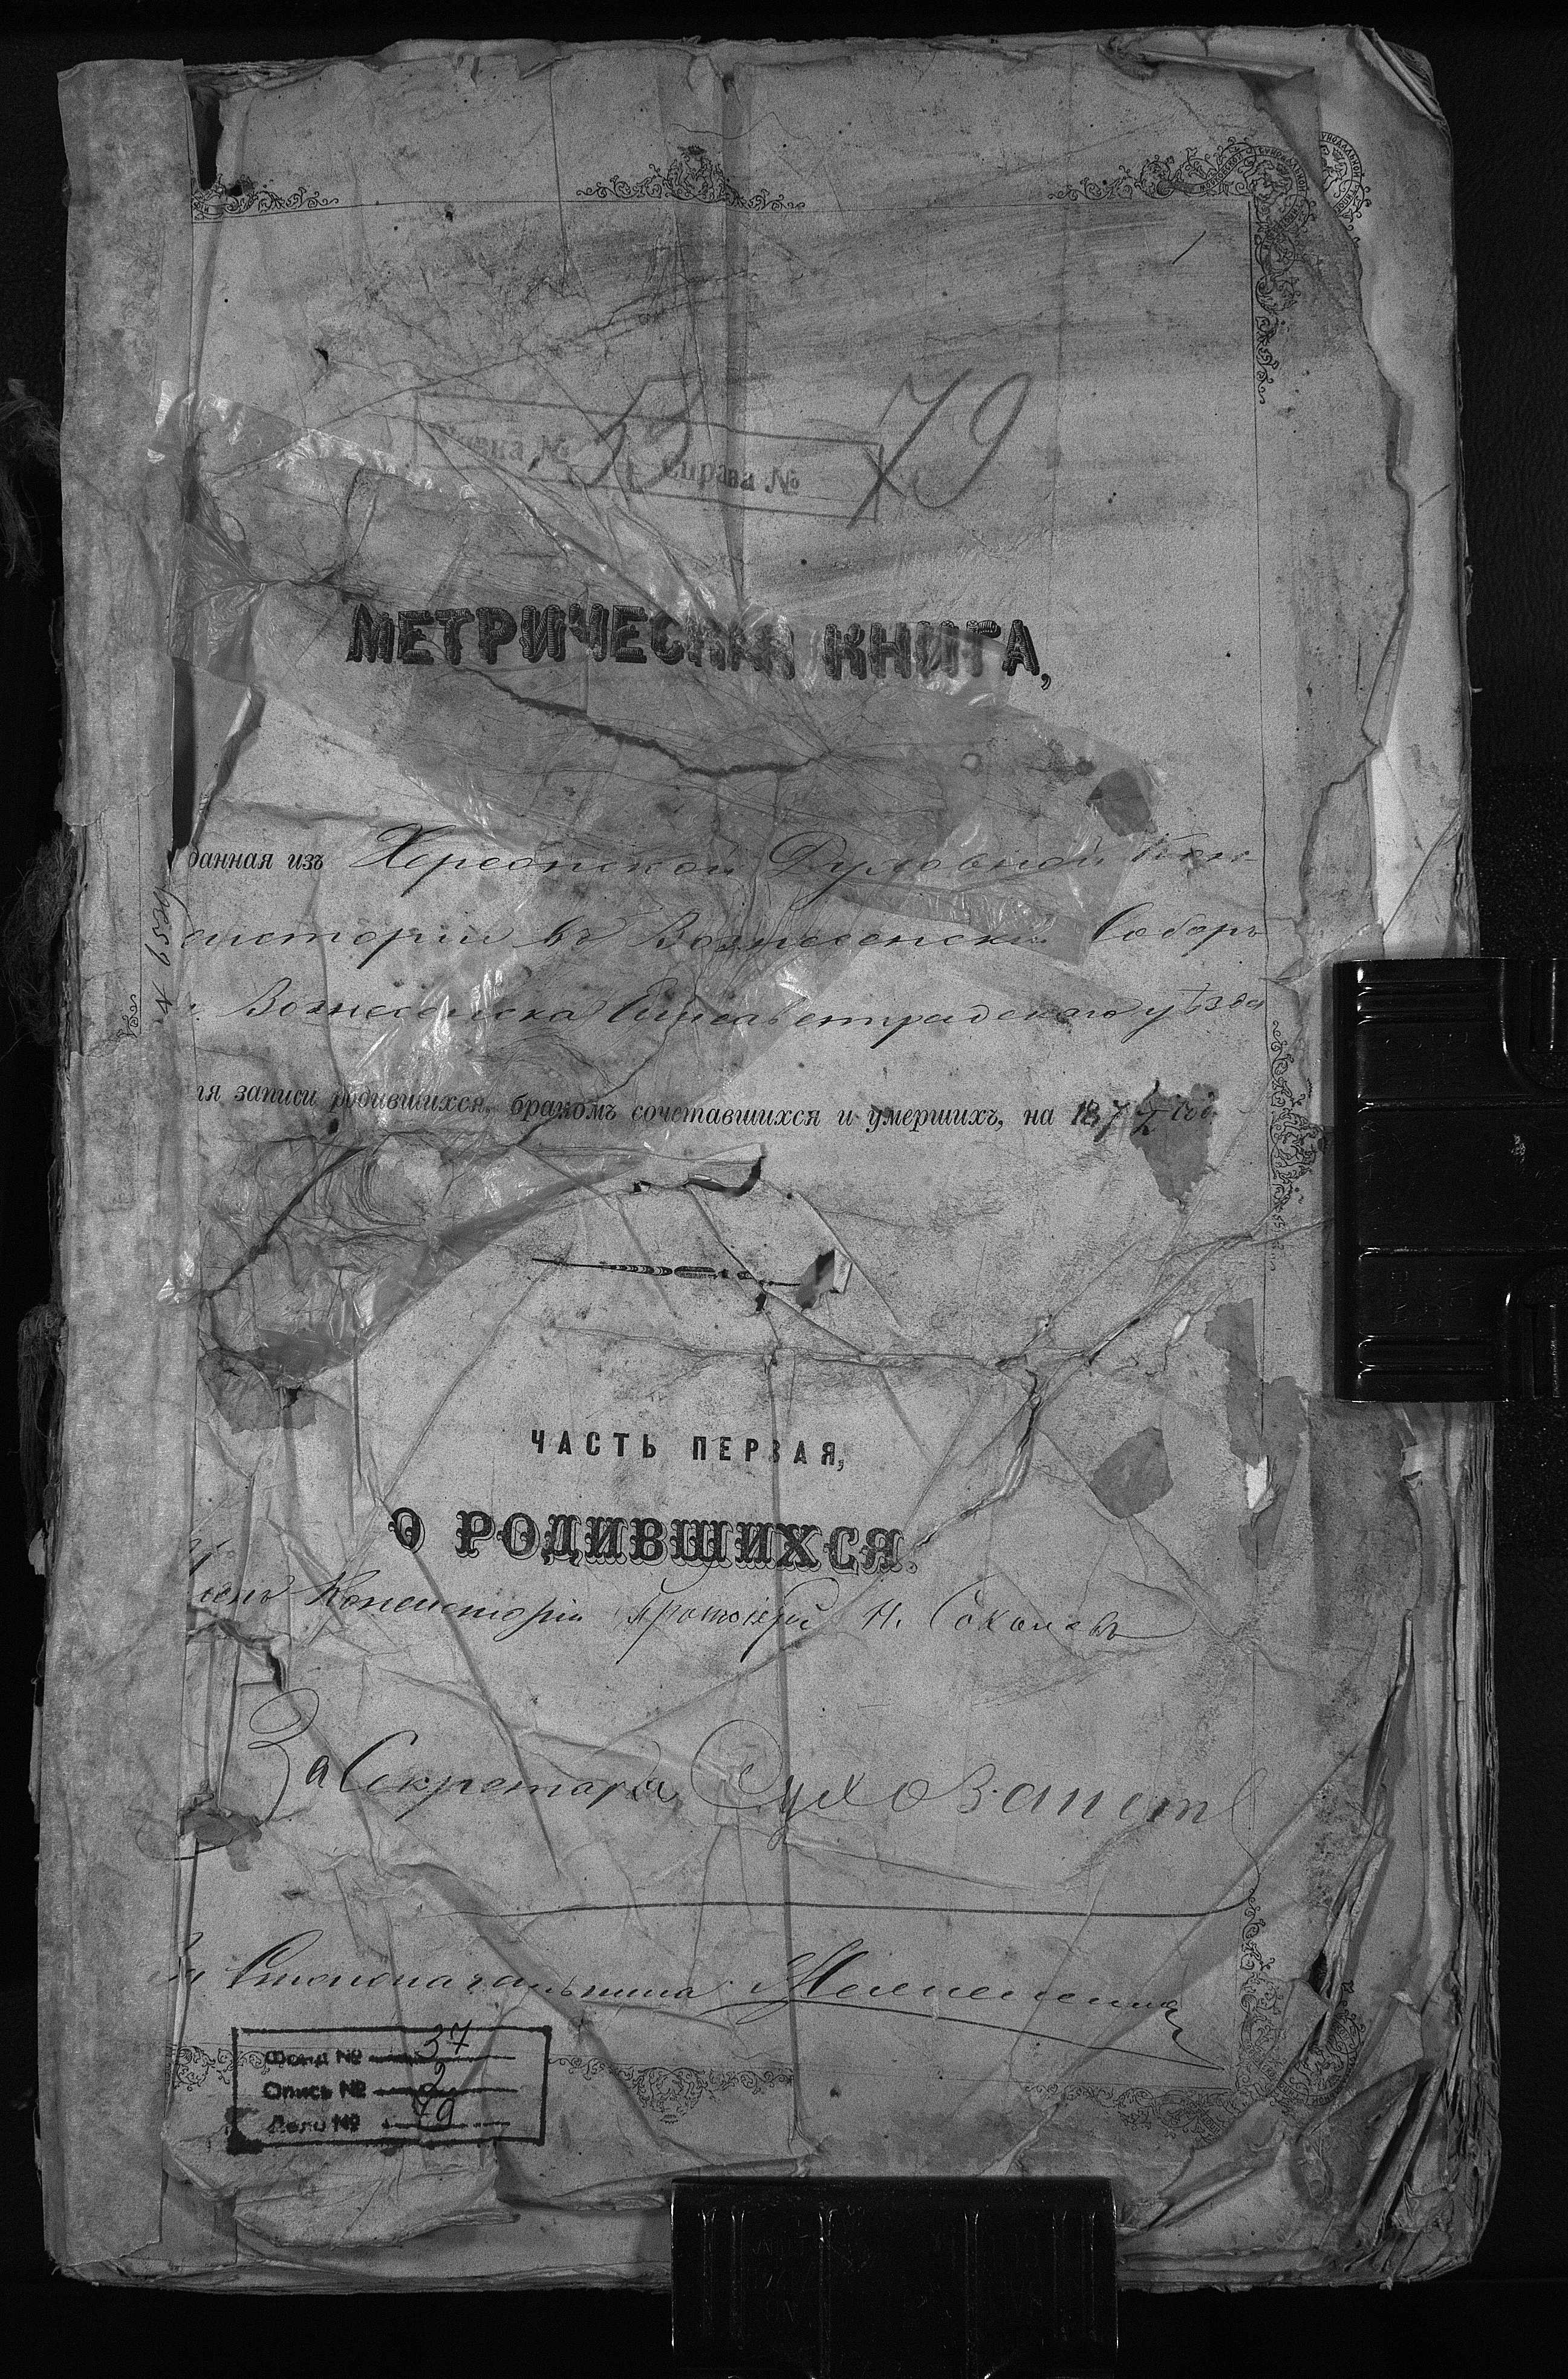 Справа №
55
79
МЕТРИЧЕСКАЯ КНИГА,
данная изъ Херсонской Духовной Кон-
систоріи въ Вознесенскій Соборъ
Вознесенска Елисаветградского уѣзда
ля записи родившихся, бракомъ сочетавшихся и умершихъ, на 187 годъ.
ЧАСТЬ ПЕРВАЯ,
О РОДИВШИХСЯ.
Членъ Консисторіи Протоіерей Н. Соколовъ
За Секретаря
За Столоначальника
Фонд № 37
Опись № 2
Дело № 79